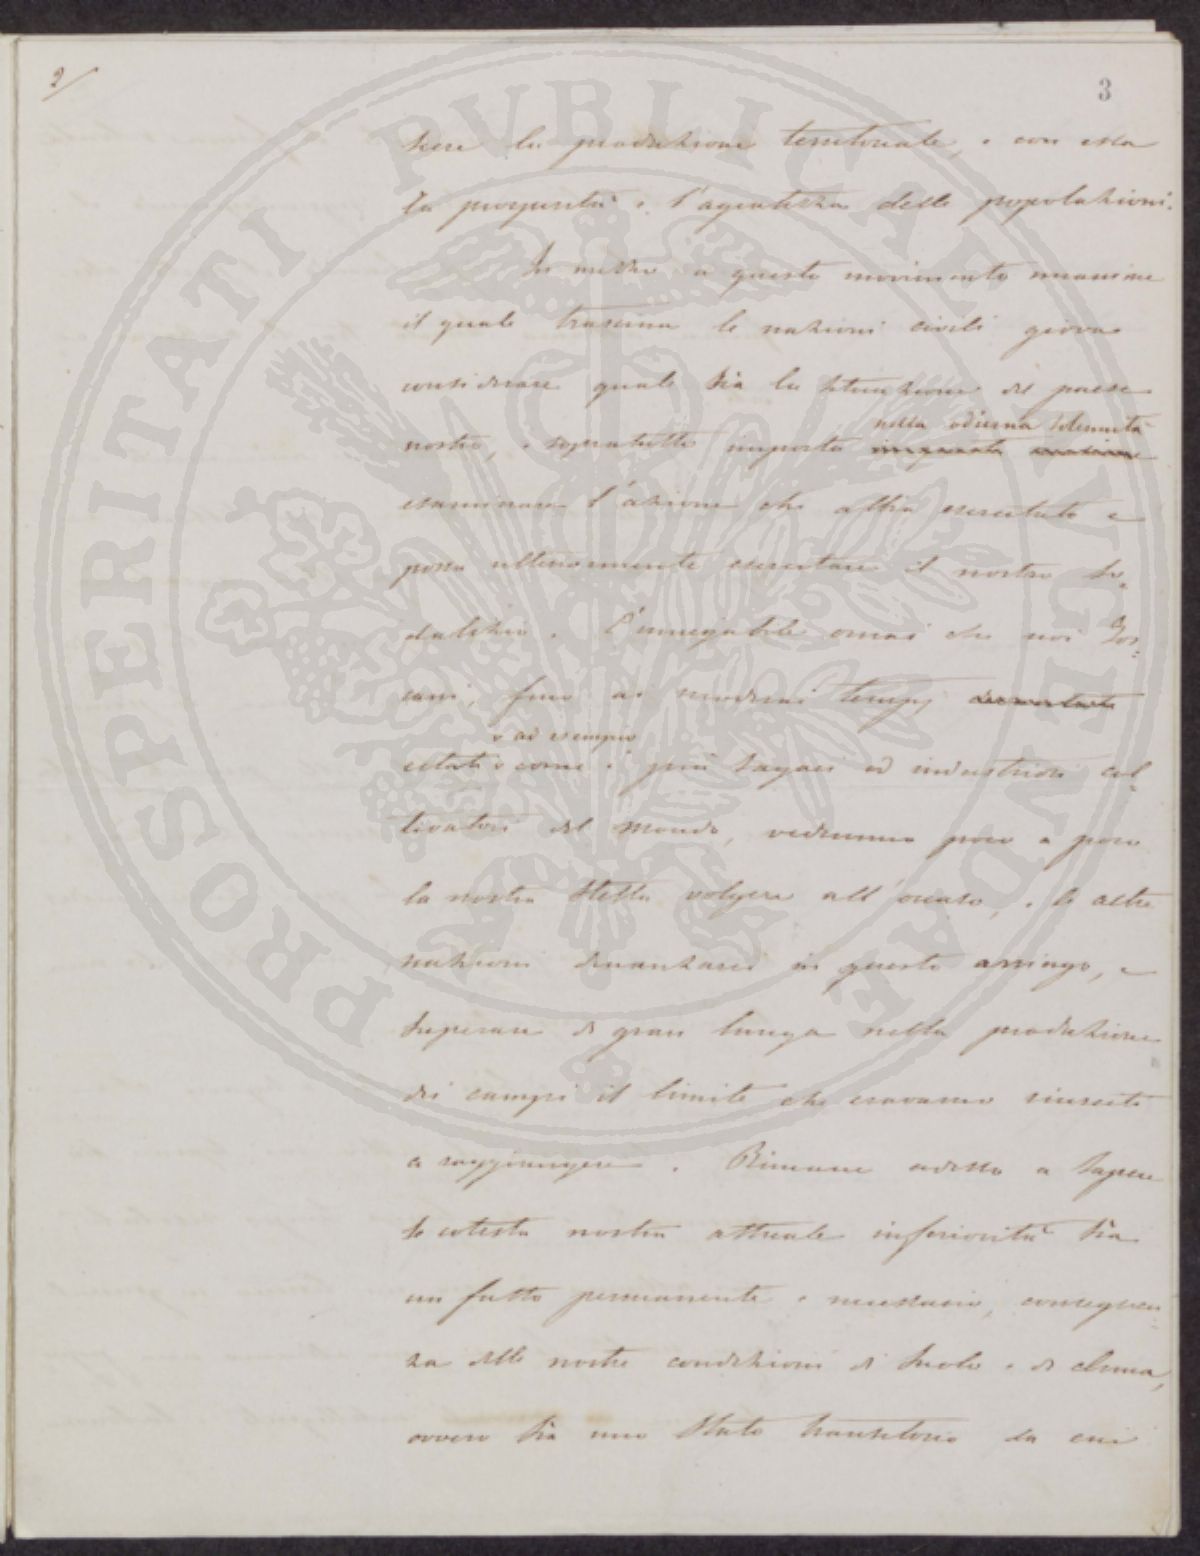 2/
3
scere la produzione territoriale, e con essa
la prosperità e l'agiatezza delle popolazioni.
In mezzo a questo movimento unanime
il quale trascina le nazioni civili giova
considerare quale sia la situazione del paese
nella odierna solennità
nostro, e sopratutto importa in questa
esaminare l'azione che abbia esercitato e
possa ulteriormente esercitare il nostro So-
dalizio. È innegabile omai che noi Tos-
cani, fino ai moderni tempi
e ad esempio
citati come i più sagaci ed industriosi col-
tivatori del mondo, vedemmo poco a poco
la nostra stella volgere all'occaso, e le altre
nazioni avanzarci in questo arringo, e
superare di gran lunga nella produzione
dei campi il limite che eravamo riusciti
a raggiungere. Rimane adesso a sapere
se cotesta nostra attuale inferiorità sia
un fatto permanente e necessario, conseguen-
za delle nostre condizioni di suolo e di clima,
ovvero sia uno stato transitorio da cui
PROSPERITATI PVBLICAE AVGENDAE